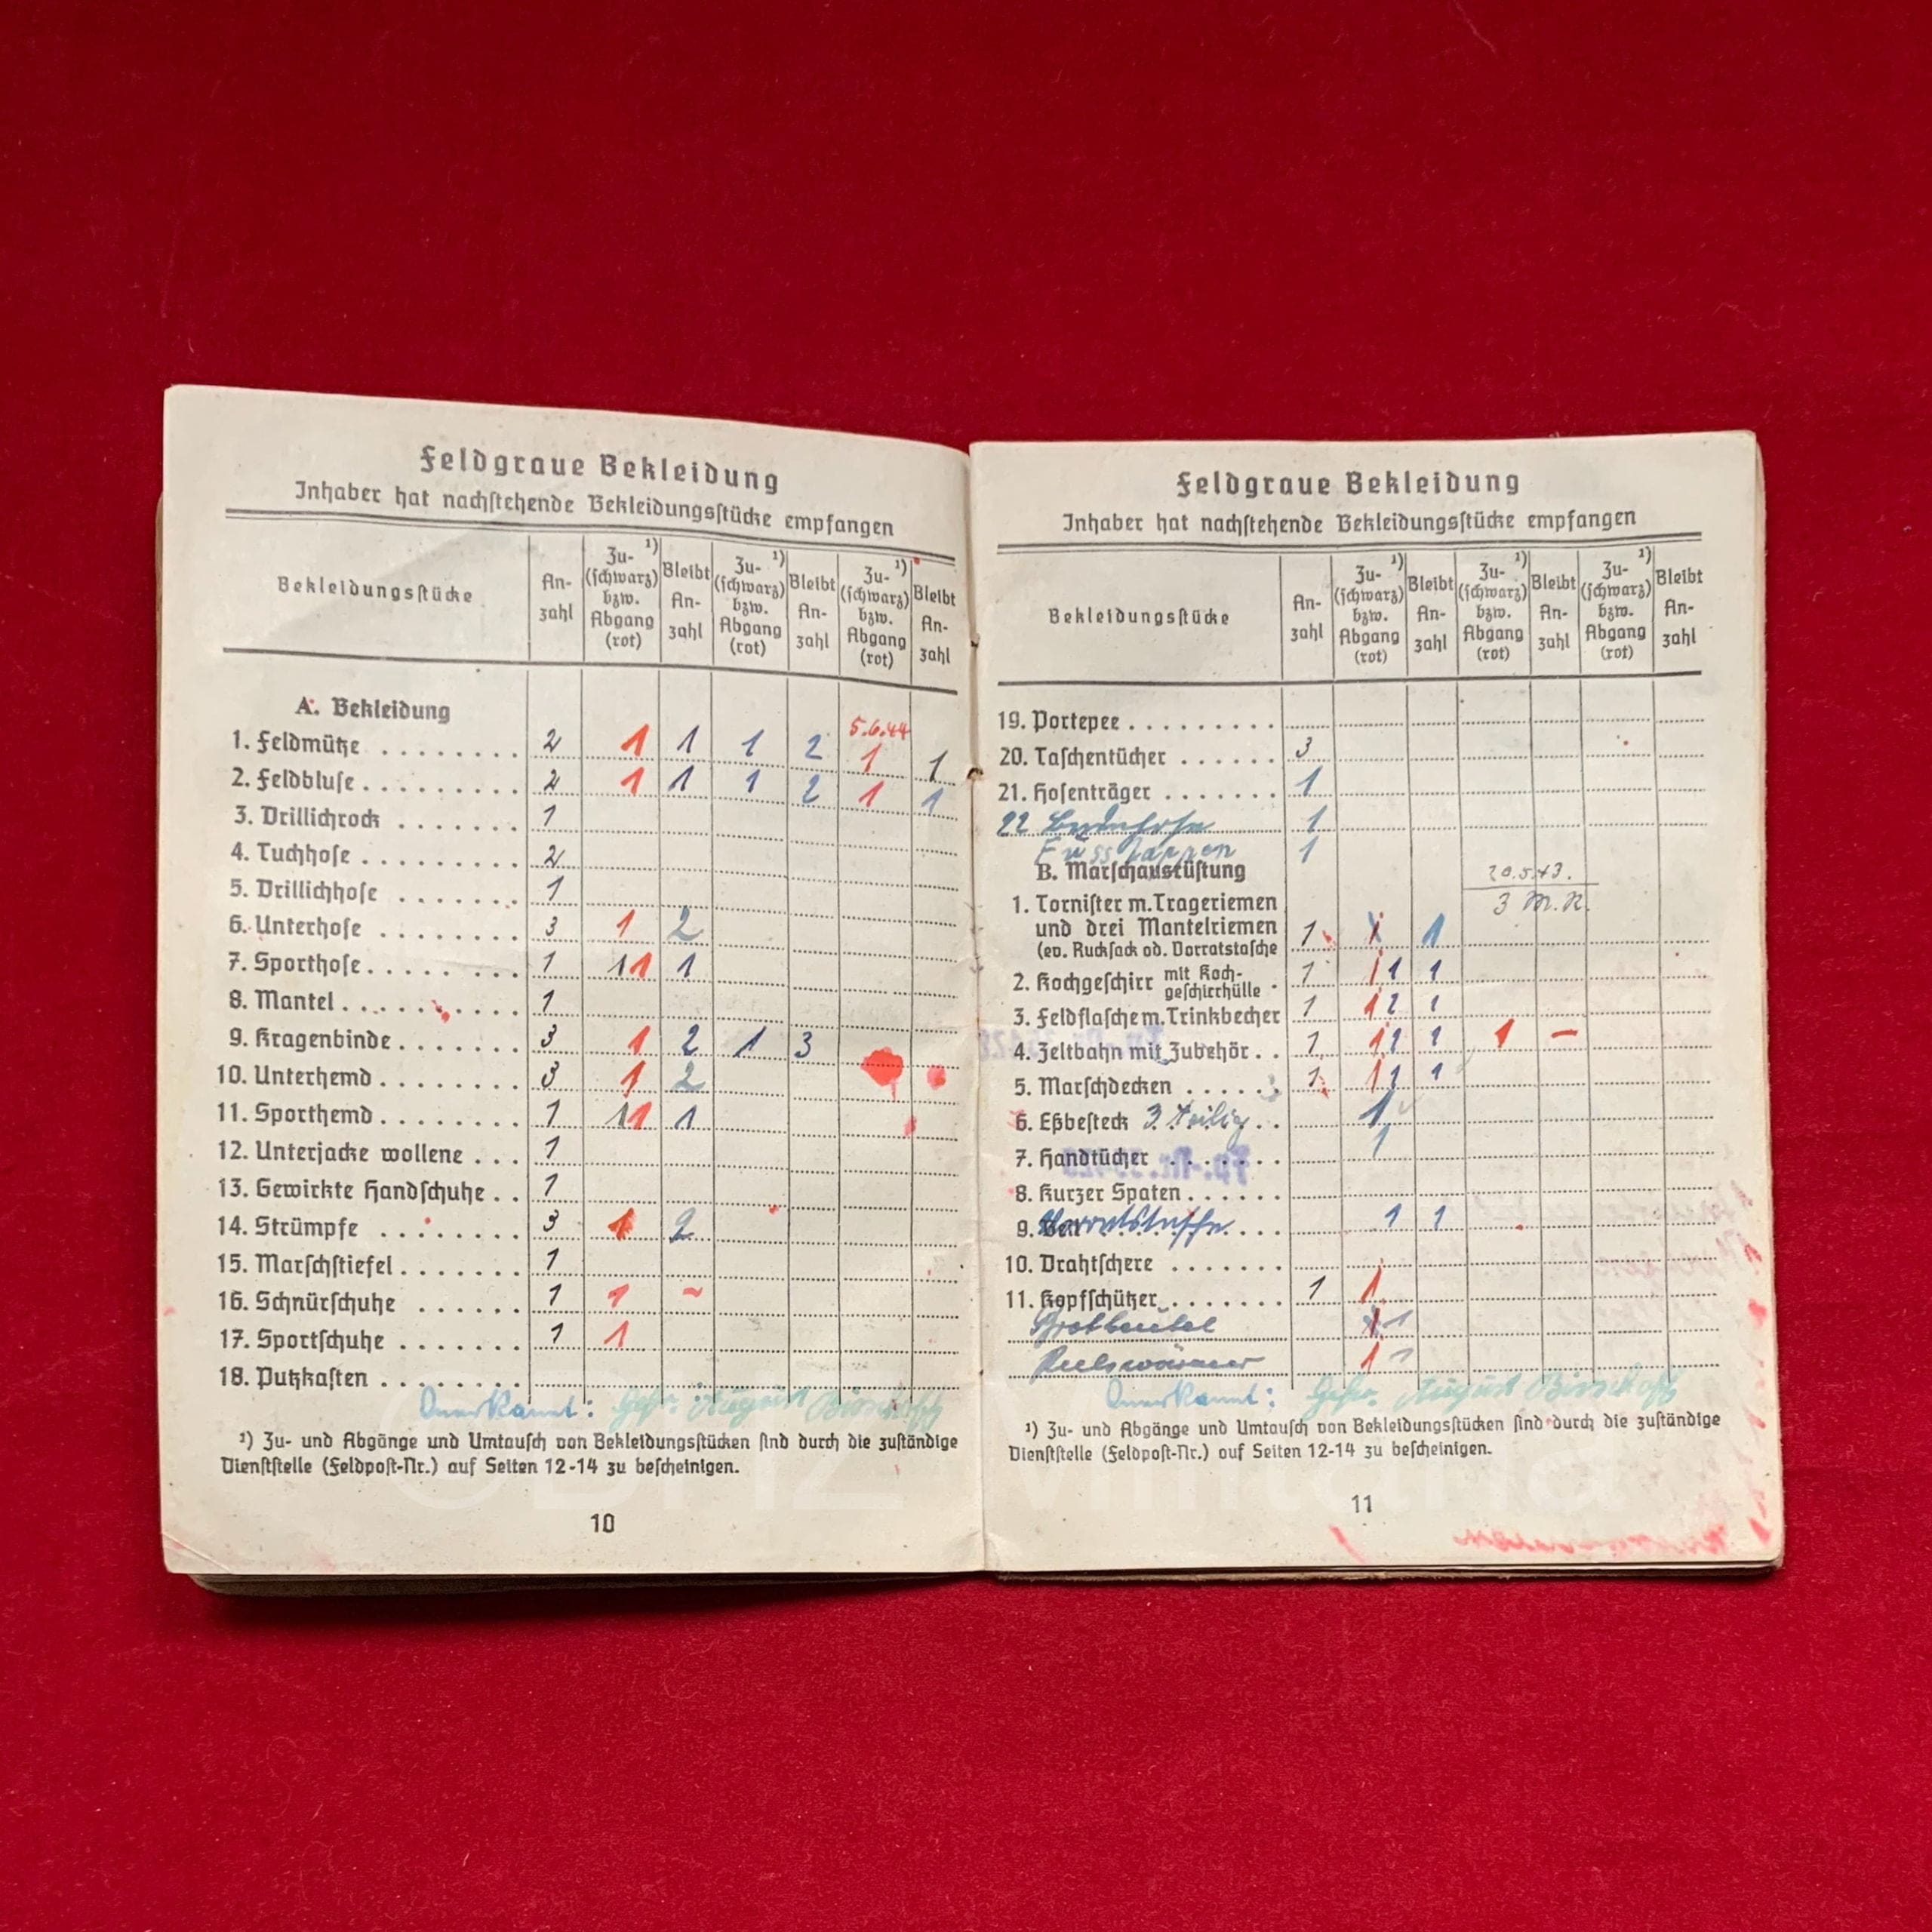 Feldgraue Bekleidung
Inhaber hat nachstehende Bekleidungsstücke empfangen
Bekleidungsstücke | An-zahl | Zu-¹) (schwarz) bzw. Abgang (rot) | Bleibt An-zahl | Zu-¹) (schwarz) bzw. Abgang (rot) | Bleibt An-zahl | Zu-¹) (schwarz) bzw. Abgang (rot) | Bleibt An-zahl
A. Bekleidung
5.6.44
1. Feldmütze ........ 2 1 1 1 2 1 1
2. Feldbluse ......... 2 1 1 1 2 1 1
3. Drillichrock ....... 1
4. Tuchhose ......... 2
5. Drillichhose ....... 1
6. Unterhose ........ 3 1 2
7. Sporthose ........ 1 1 1 1
8. Mantel ........ 1
9. Kragenbinde ....... 3 1 2 1 3
10. Unterhemd ........ 3 1 2
11. Sporthemd ........ 1 1 1 1
12. Unterjacke wollene ... 1
13. Gewirkte Handschuhe .. 1
14. Strümpfe ........ 3 1 2
15. Marschstiefel ....... 1
16. Schnürschuhe ...... 1 1 –
17. Sportschuhe ....... 1 1
18. Putzkasten ........
Anerkannt: Gefr. August Bischoff
¹) Zu- und Abgänge und Umtausch von Bekleidungsstücken sind durch die zuständige
Dienststelle (Feldpost-Nr.) auf Seiten 12-14 zu bescheinigen.
10
Feldgraue Bekleidung
Inhaber hat nachstehende Bekleidungsstücke empfangen
Bekleidungsstücke | An-zahl | Zu-¹) (schwarz) bzw. Abgang (rot) | Bleibt An-zahl | Zu-¹) (schwarz) bzw. Abgang (rot) | Bleibt An-zahl | Zu-¹) (schwarz) bzw. Abgang (rot) | Bleibt An-zahl
19. Portepee .........
20. Taschentücher ...... 3
21. Hosenträger ....... 1
22 1
Fusslappen 1
B. Marschausrüstung
20.5.43.
3 M.R.
1. Tornister m. Trageriemen
und drei Mantelriemen 1 1
(ev. Rucksack od. Vorratstasche
2. Kochgeschirr mit Koch-geschirrhülle . 1 1 1 1
3. Feldflasche m. Trinkbecher 1 1 1 1
4. Zeltbahn mit Zubehör .. 1 1 1 1 1 –
5. Marschdecken ..... 1 1 1 1
6. Eßbesteck 3 teilig .. 1
7. Handtücher ....... 1
8. Kurzer Spaten ......
9. Vorratstasche .... 1 1
10. Drahtschere .......
11. Kopfschützer ....... 1 1
Brotbeutel 1
Pulswärmer 1 1
Anerkannt: Gefr. August Bischoff
¹) Zu- und Abgänge und Umtausch von Bekleidungsstücken sind durch die zuständige
Dienststelle (Feldpost-Nr.) auf Seiten 12-14 zu bescheinigen.
11